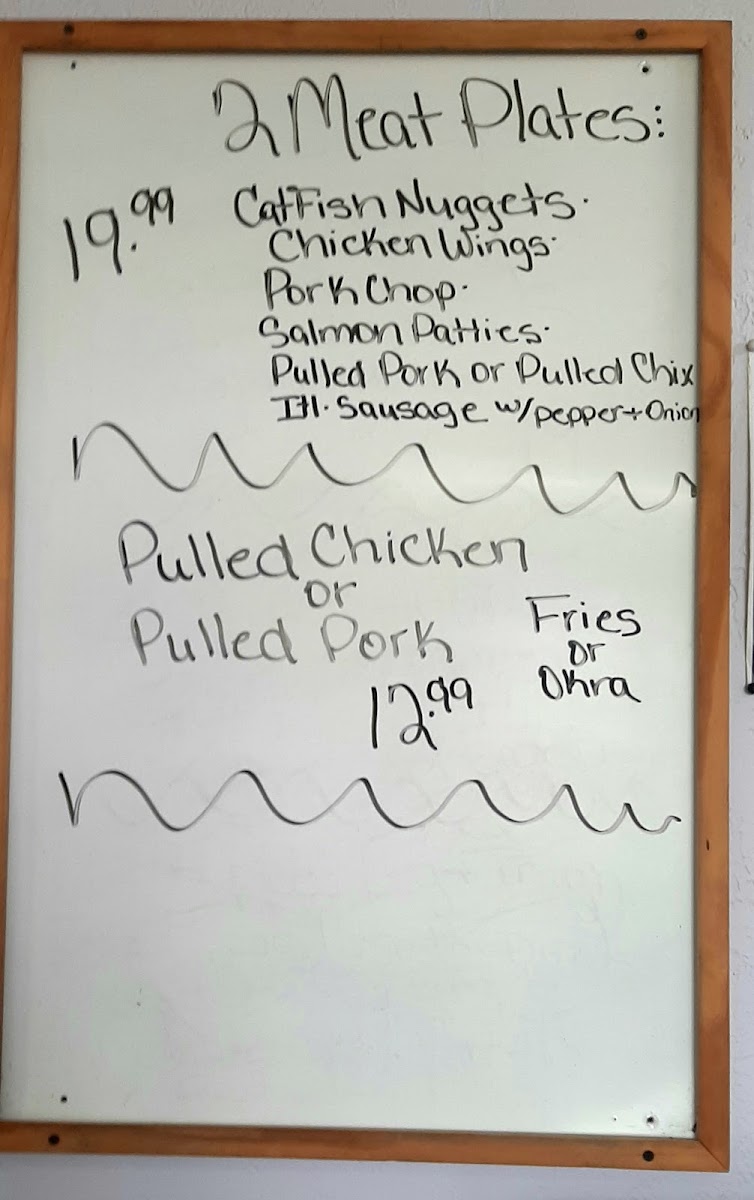 2 Meat Plates:
19.99 CatFish Nuggets.
Chicken Wings.
Pork Chop.
Salmon Patties.
Pulled Pork or Pulled Chix
Itl. Sausage w/pepper+Onion
Pulled Chicken
or
Pulled Pork
12.99
Fries
or
Okra